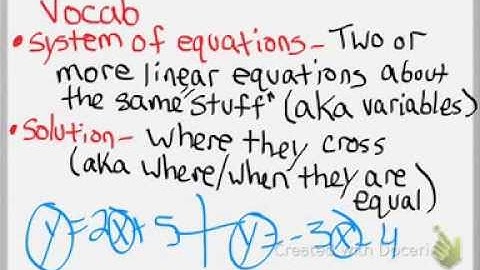 Vocab
• System of equations - Two or
more linear equations about
the same "stuff" (aka variables)
• Solution - where they cross
(aka where/when they are
equal)
y = 2x + 5 + y = -3x + 4
Created with Doceri